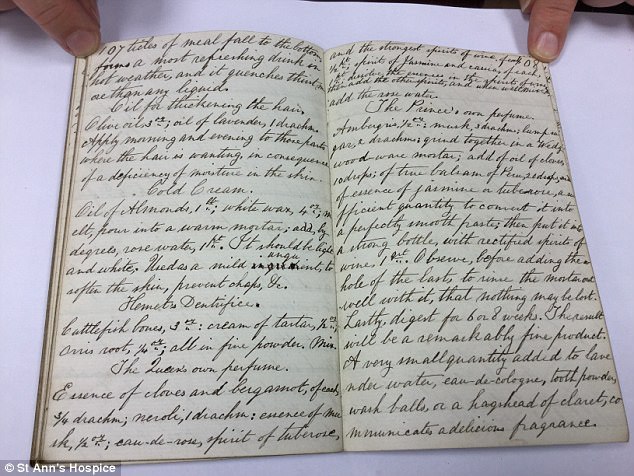 107 ticles of meal fall to the bottom
forms a most refreshing drink in
hot weather, and it quenches thirst m
ore than any liquid.
Oil for thickening the hair.
Olive oil, 3 oz; oil of lavender, 1 drachm.
Apply morning and evening to those parts
where the hair is wanting, in consequence
of a deficiency of moisture in the skin.
Cold Cream.
Oil of Almonds, 1 lb; white wax, 4 oz; m
elt, pour into a warm mortar; add, by
degrees, rose water, 1 lb. It should be light
and white. Used as a mild unguent, to
soften the skin, prevent chaps, &c.
Hemet's Dentifrice.
Cuttlefish bones, 3 oz: cream of tartar,
Orris root, ; all in fine powder. Mix.
The Queen's own perfume.
Essence of cloves and bergamot, of each,
3/4 drachm; neroli, 1 drachm; essence of mu
sk, 1/2 oz; eau-de-rose, spirit of tuberose,
and the strongest spirits of wine, of each
spirit of jasmine and cassia, of each,
dissolve the essences in the spirit of wine,
then add the other spirits, and when well mixed
add the rose water.
The Prince's own perfume.
Ambergris, 1/2 oz; musk, 3 drachms; lump su
gar, 2 drachms; grind together in a Wedg
wood-ware mortar; add of oil of cloves
10 drops; of true balsam of Peru, drops; and
of essence of jasmine or tuberose, a su
fficient quantity to convert it into
a perfectly smooth paste; then put it into
a strong bottle, with rectified spirits of
wine, 1 Observe, before adding the w
hole of the last, to rinse the mortar out
well with it, that nothing may be lost.
Lastly, digest for 6 or 8 weeks. The result
will be a remarkably fine product.
A very small quantity added to lave
nder water, eau-de-cologne, tooth powder,
wash balls, or a hogshead of claret, co
mmunicates a delicious fragrance.
© St Ann's Hospice